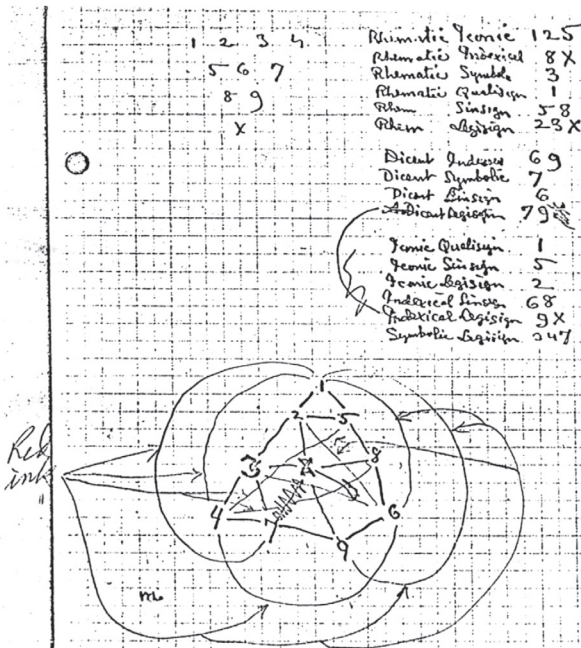 1 2 3 4
5 6 7
8 9
X
Rhematic Iconic 125
Rhematic Indexical 8X
Rhematic Symbols 3
Rhematic Qualisign 1
Rhem Sinsign 58
Rhem Legisign 23X
Dicent Indexes 69
Dicent Symbolic 7
Dicent Sinsign 6
Dicent Legisign 79
Iconic Qualisign 1
Iconic Sinsign 5
Iconic Legisign 2
Indexical Sinsign 68
Indexical Legisign 9X
Symbolic Legisign 347
1
2 5
3 8
4 7 6
9
Red
ink